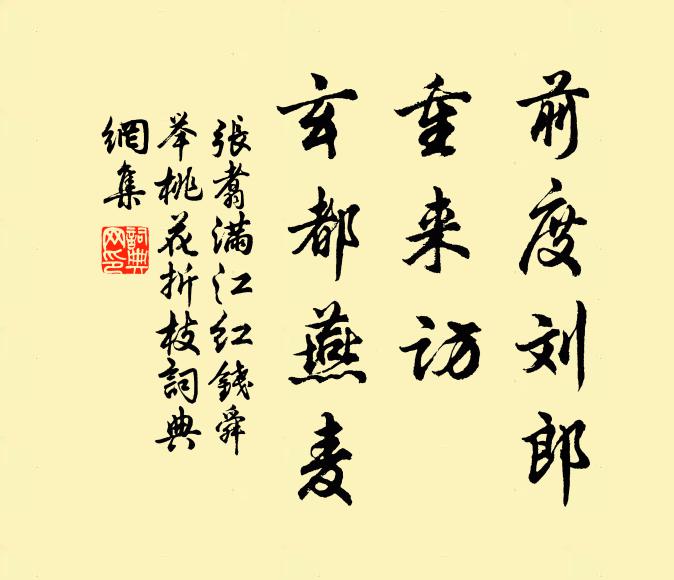 前度刘郎
重来访
玄都燕麦
張翥满江红錢舜
举桃花折枝詞典
網集
詞典网印